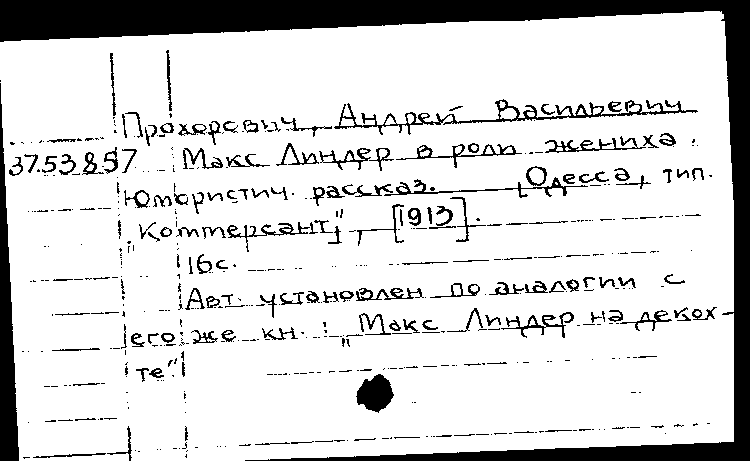 Прохоревич, Андрей Васильевич
37.53857 Макс Линдер в роли жениха.
Юмористич. рассказ. [Одесса, тип.
"Коммерсант"], [1913].
16с.
Авт. установлен по аналогии с
его же кн.: "Макс Линдер на декох-
те".